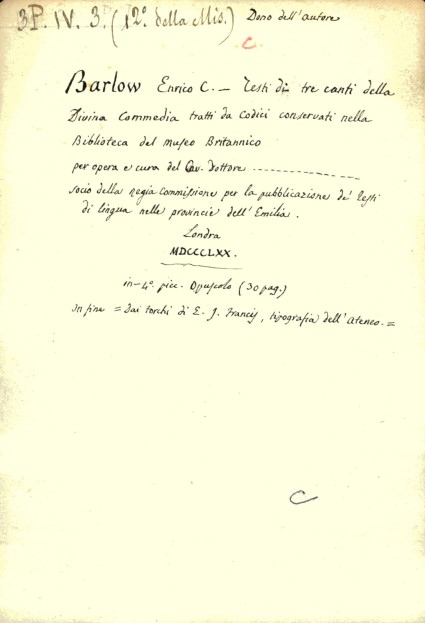 3P. IV. 3. (12º. della Mis.) Dono dell'autore
C
Barlow Enrico C. — Testi di tre canti della
Divina Commedia tratti da Codici conservati nella
Biblioteca del Museo Britannico
per opera e cura del Cav. Dottore ----------
socio della Regia Commissione per la pubblicazione de' Testi
di lingua nelle provincie dell'Emilia.
Londra
MDCCCLXX.
in-4º. picc. Opuscolo (30 pag.)
In fine = dai torchi di E. J. Francis, tipografia dell'Ateneo. =
C